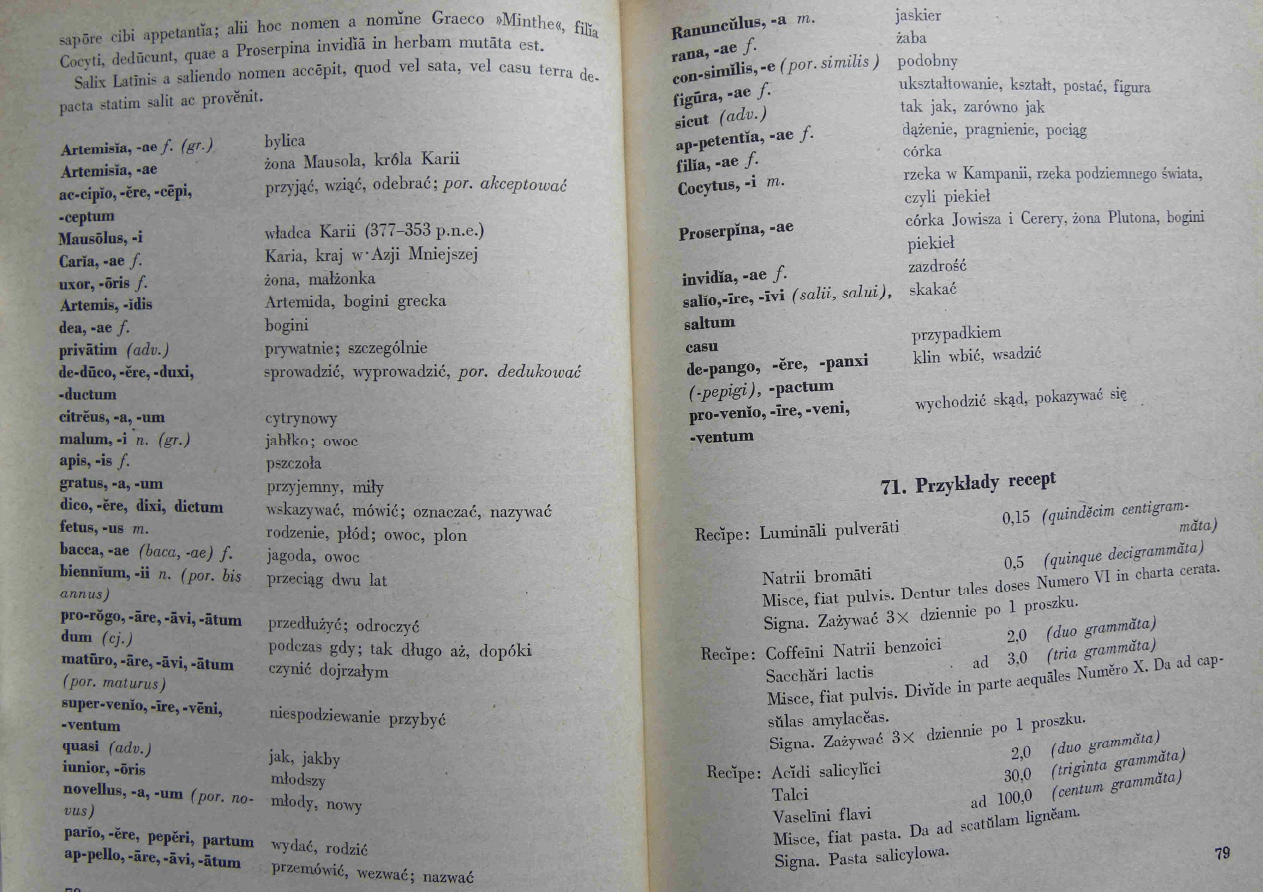 sapōre cibi appetantĭa; alii hoc nomen a nomĭne Graeco »Minthe«, filĭa
Cocyti, dedūcunt, quae a Proserpina invidĭā in herbam mutāta est.
Salix Latīnis a saliendo nomen accēpit, quod vel sata, vel casu terra de-
pacta statim salit ac provĕnit.
Artemisĭa, -ae f. (gr.) bylica
Artemisĭa, -ae żona Mausola, króla Karii
ac-cipĭo, -ĕre, -cēpi, przyjąć, wziąć, odebrać; por. akceptować
-ceptum
Mausōlus, -i władca Karii (377–353 p.n.e.)
Carĭa, -ae f. Karia, kraj w Azji Mniejszej
uxor, -ōris f. żona, małżonka
Artemis, -ĭdis Artemida, bogini grecka
dea, -ae f. bogini
privātim (adv.) prywatnie; szczególnie
de-dūco, -ĕre, -duxi, sprowadzić, wyprowadzić, por. dedukować
-ductum
citrĕus, -a, -um cytrynowy
malum, -i n. (gr.) jabłko; owoc
apis, -is f. pszczoła
gratus, -a, -um przyjemny, miły
dico, -ĕre, dixi, dictum wskazywać, mówić; oznaczać, nazywać
fetus, -us m. rodzenie, płód; owoc, plon
bacca, -ae (baca, -ae) f. jagoda, owoc
biennĭum, -ii n. (por. bis przeciąg dwu lat
annus)
pro-rŏgo, -āre, -āvi, -ātum przedłużyć; odroczyć
dum (cj.) podczas gdy; tak długo aż, dopóki
matūro, -āre, -āvi, -ātum czynić dojrzałym
(por. maturus)
super-venĭo, -īre, -vēni, niespodziewanie przybyć
-ventum
quasi (adv.) jak, jakby
iunior, -ōris młodszy
novellus, -a, -um (por. no- młody, nowy
vus)
parĭo, -ĕre, pepĕri, partum wydać, rodzić
ap-pello, -āre, -āvi, -ātum przemówić, wezwać; nazwać
Ranuncŭlus, -a m. jaskier
rana, -ae f. żaba
con-simĭlis, -e (por. similis) podobny
figūra, -ae f. ukształtowanie, kształt, postać, figura
sicut (adv.) tak jak, zarówno jak
ap-petentĭa, -ae f. dążenie, pragnienie, pociąg
filĭa, -ae f. córka
Cocȳtus, -i m. rzeka w Kampanii, rzeka podziemnego świata,
czyli piekieł
Proserpĭna, -ae córka Jowisza i Cerery, żona Plutona, bogini
piekieł
invidĭa, -ae f. zazdrość
salĭo,-īre, -īvi (salii, salui), skakać
saltum
casu przypadkiem
de-pango, -ĕre, -panxi klin wbić, wsadzić
(-pepigi), -pactum
pro-venĭo, -īre, -veni, wychodzić skąd, pokazywać się
-ventum
71. Przykłady recept
Recĭpe: Lumināli pulverāti 0,15 (quindĕcim centigram-
măta)
Natrii bromāti 0,5 (quinque decigrammăta)
Misce, fiat pulvis. Dentur tales doses Numero VI in charta cerata.
Signa. Zażywać 3× dziennie po 1 proszku.
Recĭpe: Coffeīni Natrii benzoici 2,0 (duo grammăta)
Sacchări lactis ad 3,0 (tria grammăta)
Misce, fiat pulvis. Divĭde in parte aequāles Numĕro X. Da ad cap-
sŭlas amylacĕas.
Signa. Zażywać 3× dziennie po 1 proszku.
Recĭpe: Acĭdi salicylĭci 2,0 (duo grammăta)
Talci 30,0 (triginta grammăta)
Vaselīni flavi ad 100,0 (centum grammăta)
Misce, fiat pasta. Da ad scatŭlam lignĕam.
Signa. Pasta salicylowa.
79